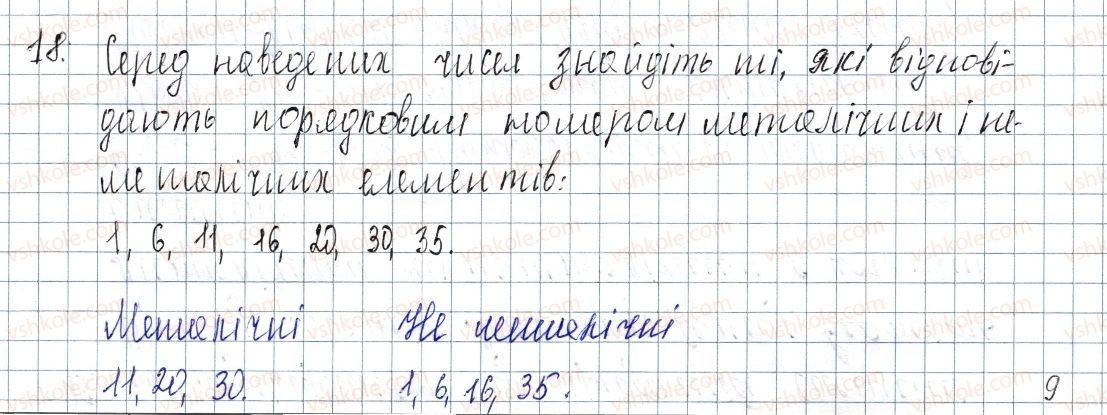 18. Серед наведених чисел знайдіть ті, які відпові-
дають порядковим номером металічних і не-
металічних елементів:
1, 6, 11, 16, 20, 30, 35.
Металічні Не металічні
11, 20, 30. 1, 6, 16, 35.
9